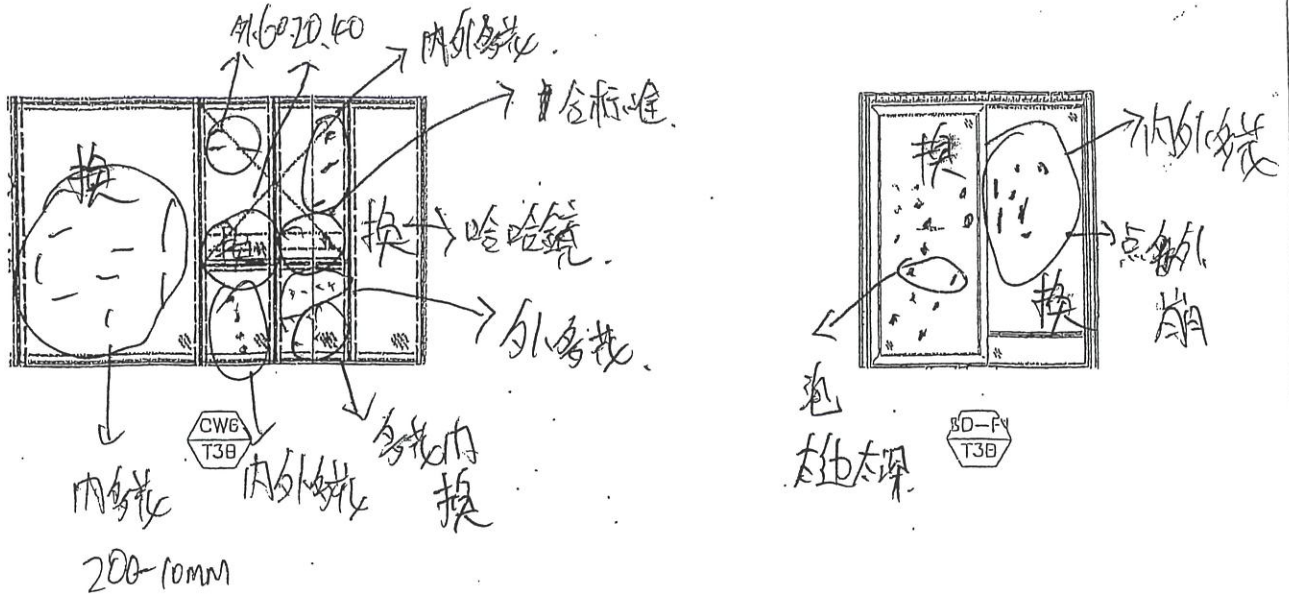 外60.20.40
内外多花.
合标准.
换
换→哈哈鏡.
外多花.
CW6
T3B
内多花
200-10mm
内外多花
多花内
换
换
内外多花
点多外
崩
换
泡
太深
T3B